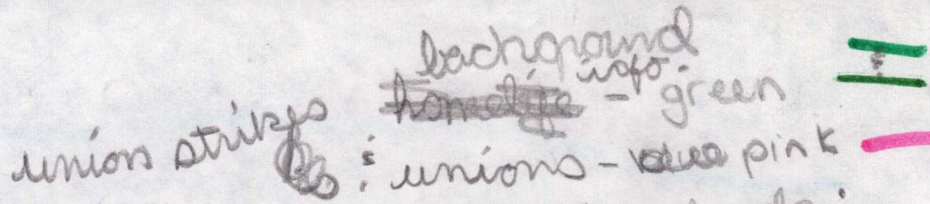 background
info.
- green
union strikes : unions - pink